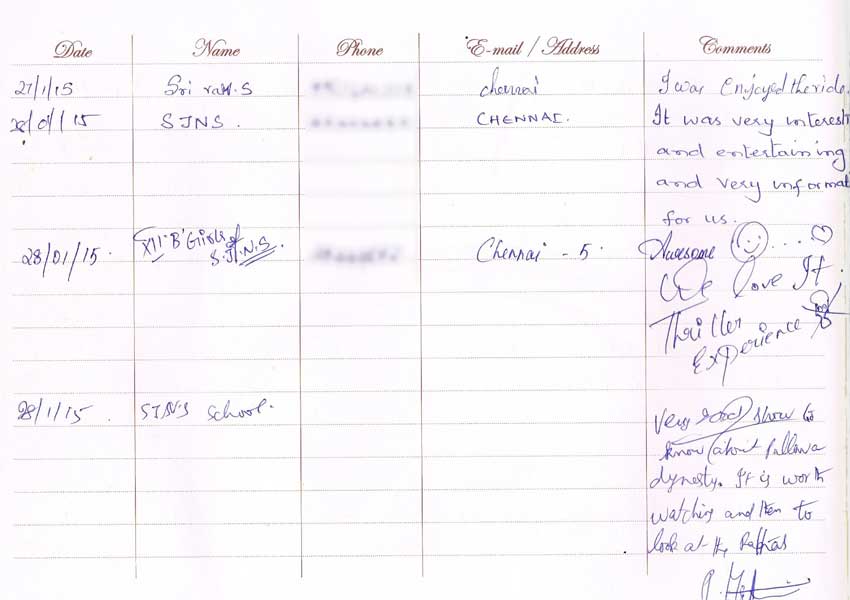 Date Name Phone E-mail / Address Comments
21/1/15 Sri ram.S chennai I was Enjoyed the ride.
28/01/15 SJNS. CHENNAI. It was very interest
and entertaining
and very informat
for us.
28/01/15. XII-'B' Girls of S.J.N.S. Chennai - 5. Awesome ....
We love It.
Thriller
Experience
28/1/15. SJNS School. Very good show to
know about Pallava
dynesty. It is worth
watching and then to
look at the